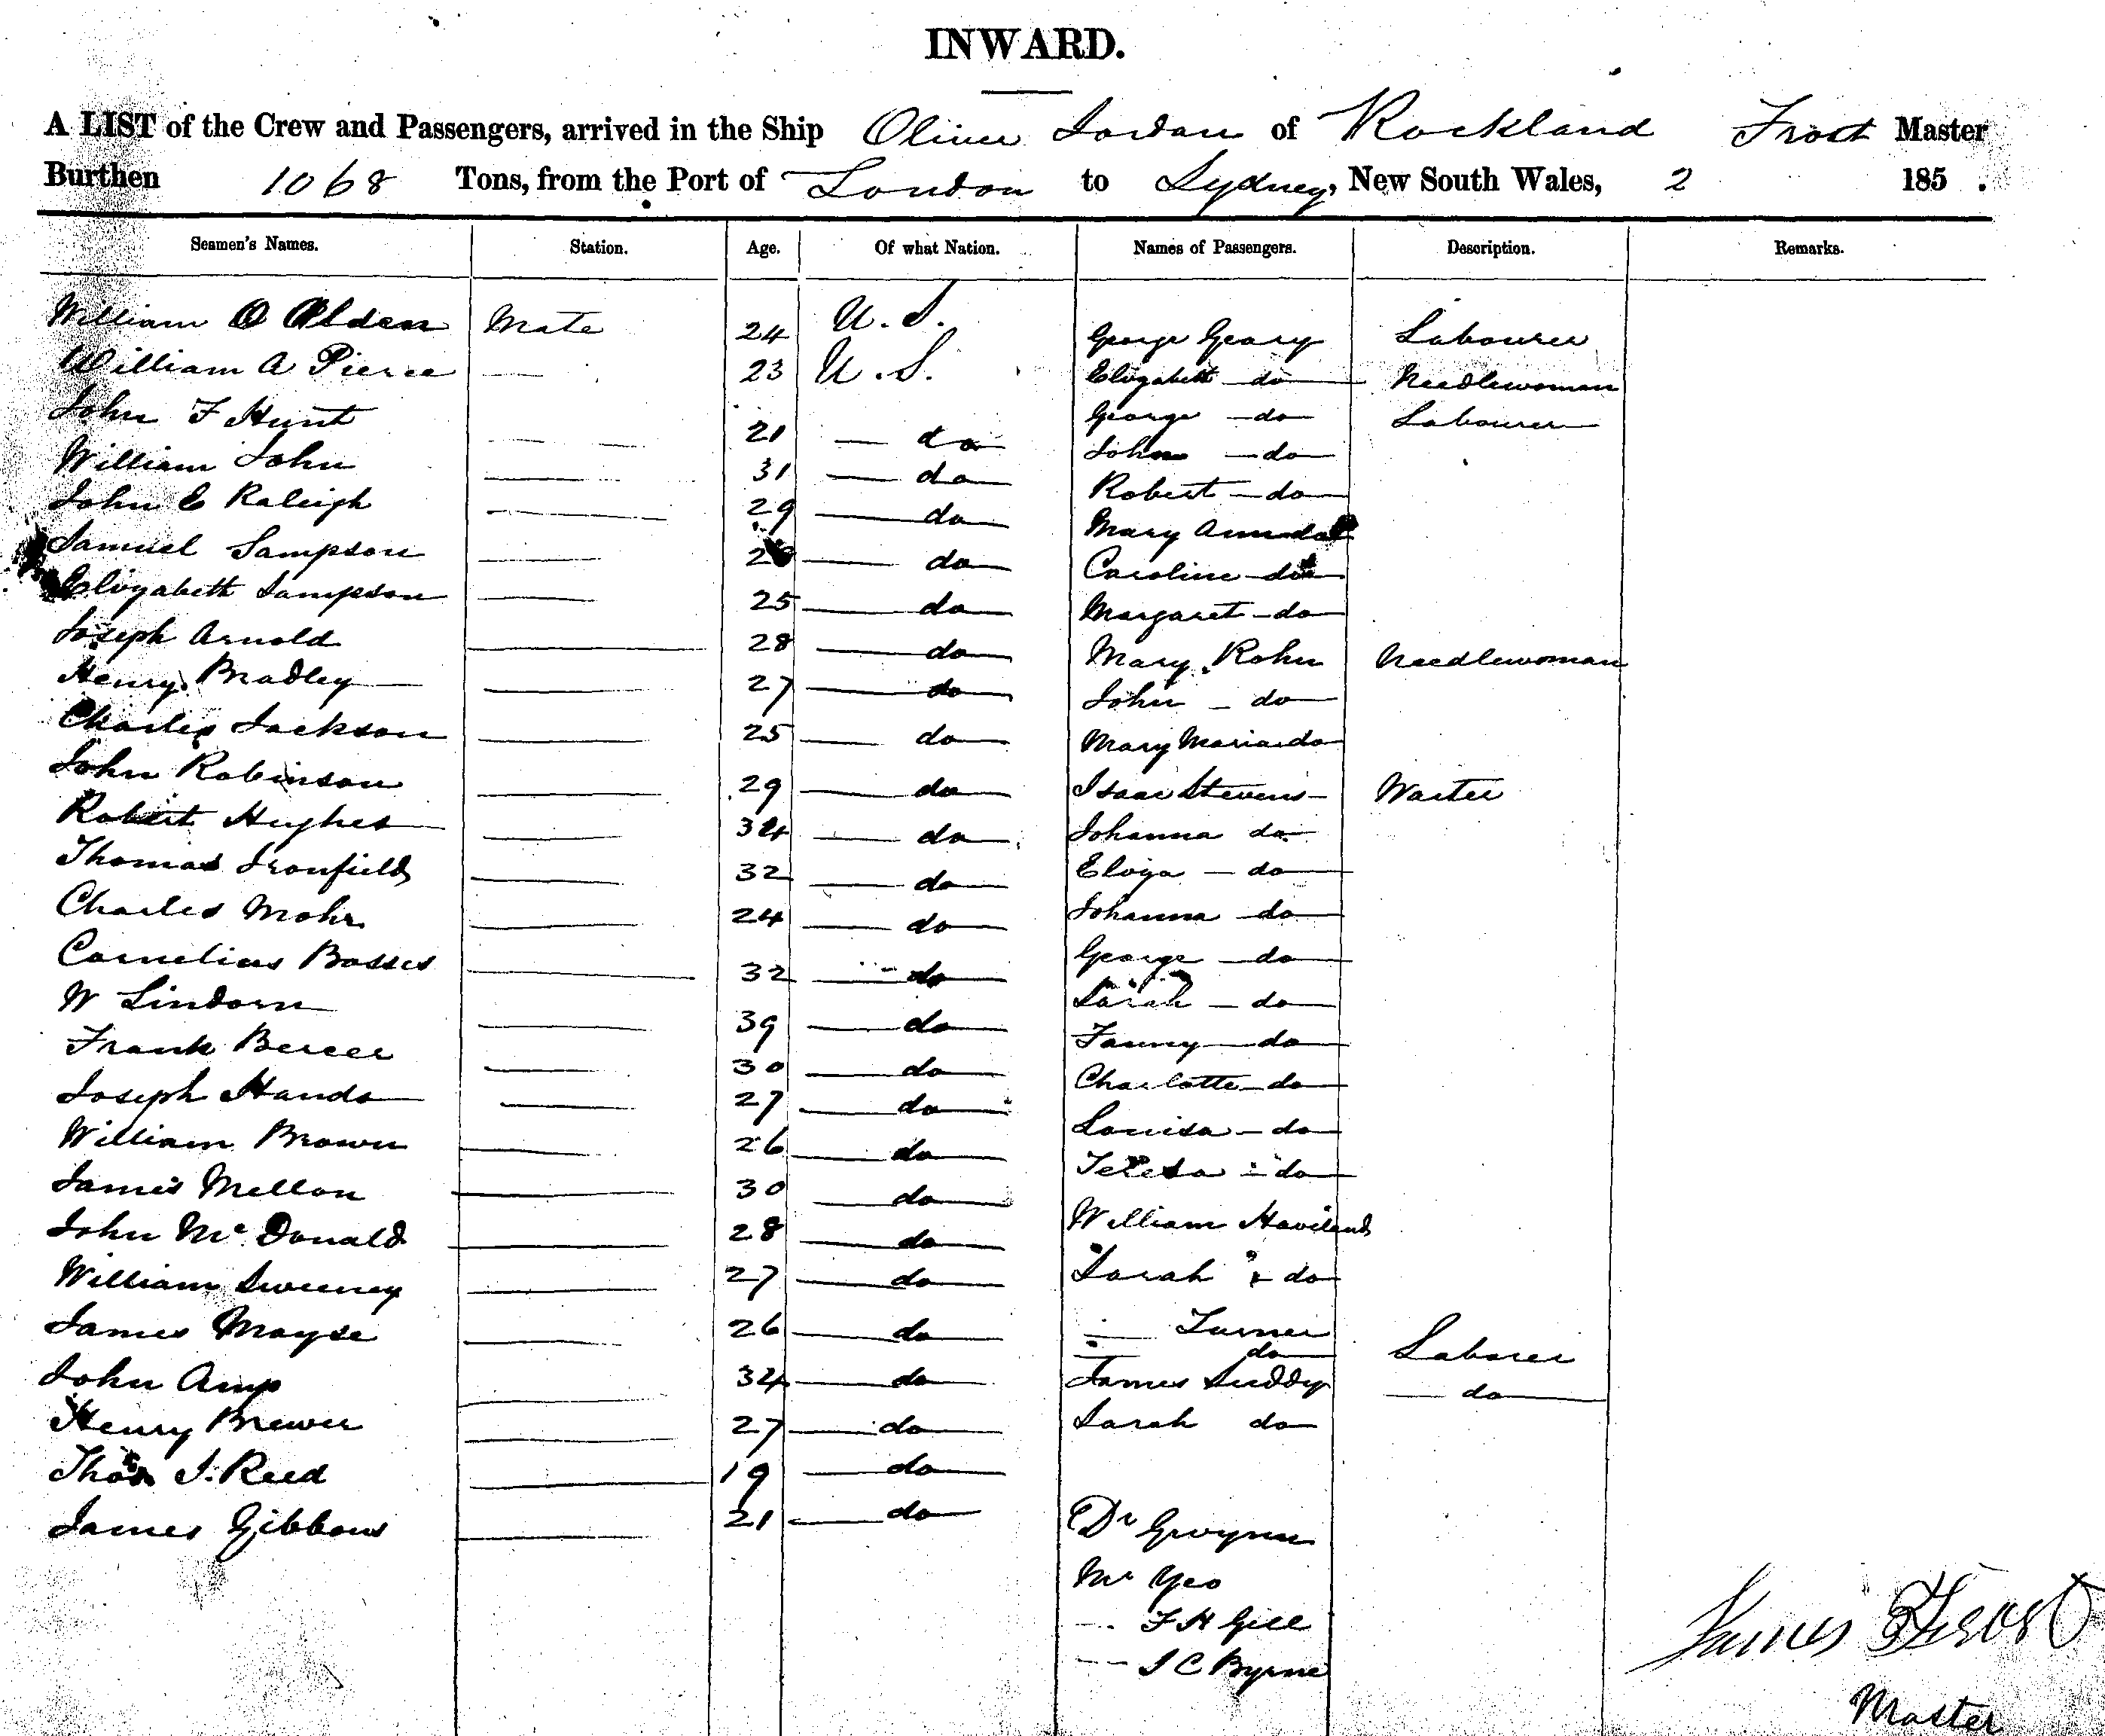 INWARD.
A LIST of the Crew and Passengers, arrived in the Ship Oliver Jordan of Rockland Frost Master
Burthen 1068 Tons, from the Port of London to Sydney, New South Wales, 2 185 .
Seamen's Names. Station. Age. Of what Nation. Names of Passengers. Description. Remarks.
William O Alden Mate 24 U.S. George Geary Labourer
William A Pierce — 23 U.S. Elizabeth do Needlewoman
John F Hunt — 21 — do George — do Labourer
William John — 31 — do John — do
John E Raleigh — 29 — do Robert — do
Samuel Sampson — — do Mary Ann do
Elizabeth Sampson — 25 — do Caroline do
Joseph Arnold — 28 — do Margaret — do
Henry Bradley — 27 — do Mary Rohn Needlewoman
Charles Jackson — 25 — do John — do
John Robinson — 29 — do Mary Maria do
Robert Hughes — 34 — do Isaac Stevens Waiter
Thomas Ironfield — 32 — do Johanna do
Charles Mohr — 24 — do Eliza — do
Cornelius Bosses — 32 — do Johanna do
W Lindorn — 39 — do George — do
Frank Bercer — 30 — do Sarah — do
Joseph Hands — 27 — do Fanny — do
William Brown — 26 — do Charlotte do
James Mellon — 30 — do Louisa — do
John McDonald — 28 — do Teresa — do
William Sweeney — 27 — do William Haviland
James Mayse — 26 — do Sarah do
John Amp — 34 — do — Turner Laborer
Henry Brewer — 27 — do — do
Thos J. Reed — 19 — do James Suddy — do
James Gibbons — 21 — do Sarah do
Dr Gwynne
Mr Yeo
— F H Gill
— J C Byrne
James Frost
Master